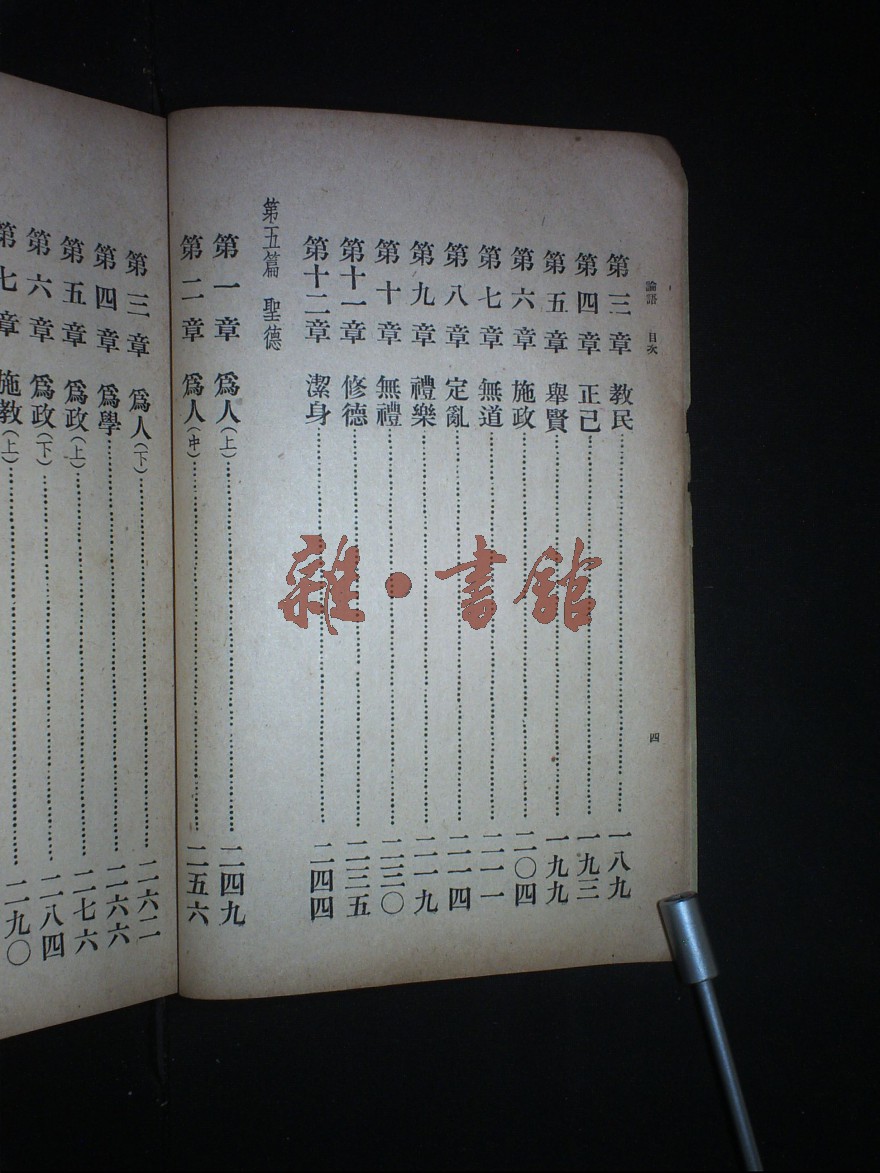 論語 目次
四
第三章 敎民 一八九
第四章 正己 一九三
第五章 舉賢 一九九
第六章 施政 二〇四
第七章 無道 二一一
第八章 定亂 二一四
第九章 禮樂 二一九
第十章 無禮 二三〇
第十一章 修德 二三五
第十二章 潔身 二四四
第五篇 聖德
第一章 爲人(上) 二四九
第二章 爲人(中) 二五六
第三章 爲人(下) 二六二
第四章 爲學 二六六
第五章 爲政(上) 二七六
第六章 爲政(下) 二八四
第七章 施敎(上) 二九〇
雜·書館